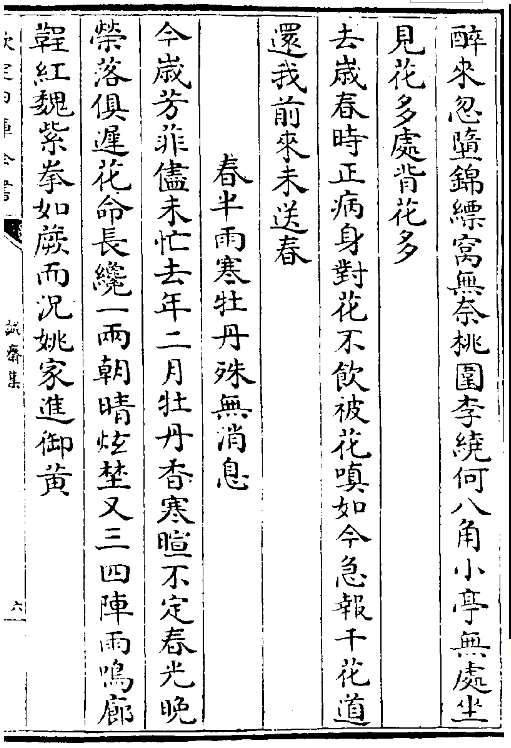 醉來忽墮錦縹窩無奈桃圍李繞何八角小亭無處坐
見花多處背花多
去歲春時正病身對花不飲被花嗔如今急報千花道
還我前來未送春
春半雨寒牡丹殊無消息
今歲芳菲儘未忙去年二月牡丹香寒暄不定春光晚
榮落俱遲花命長纔一兩朝晴炫埜又三四陣雨鳴廊
鞓紅魏紫拳如蕨而況姚家進御黃
誠齋集
六